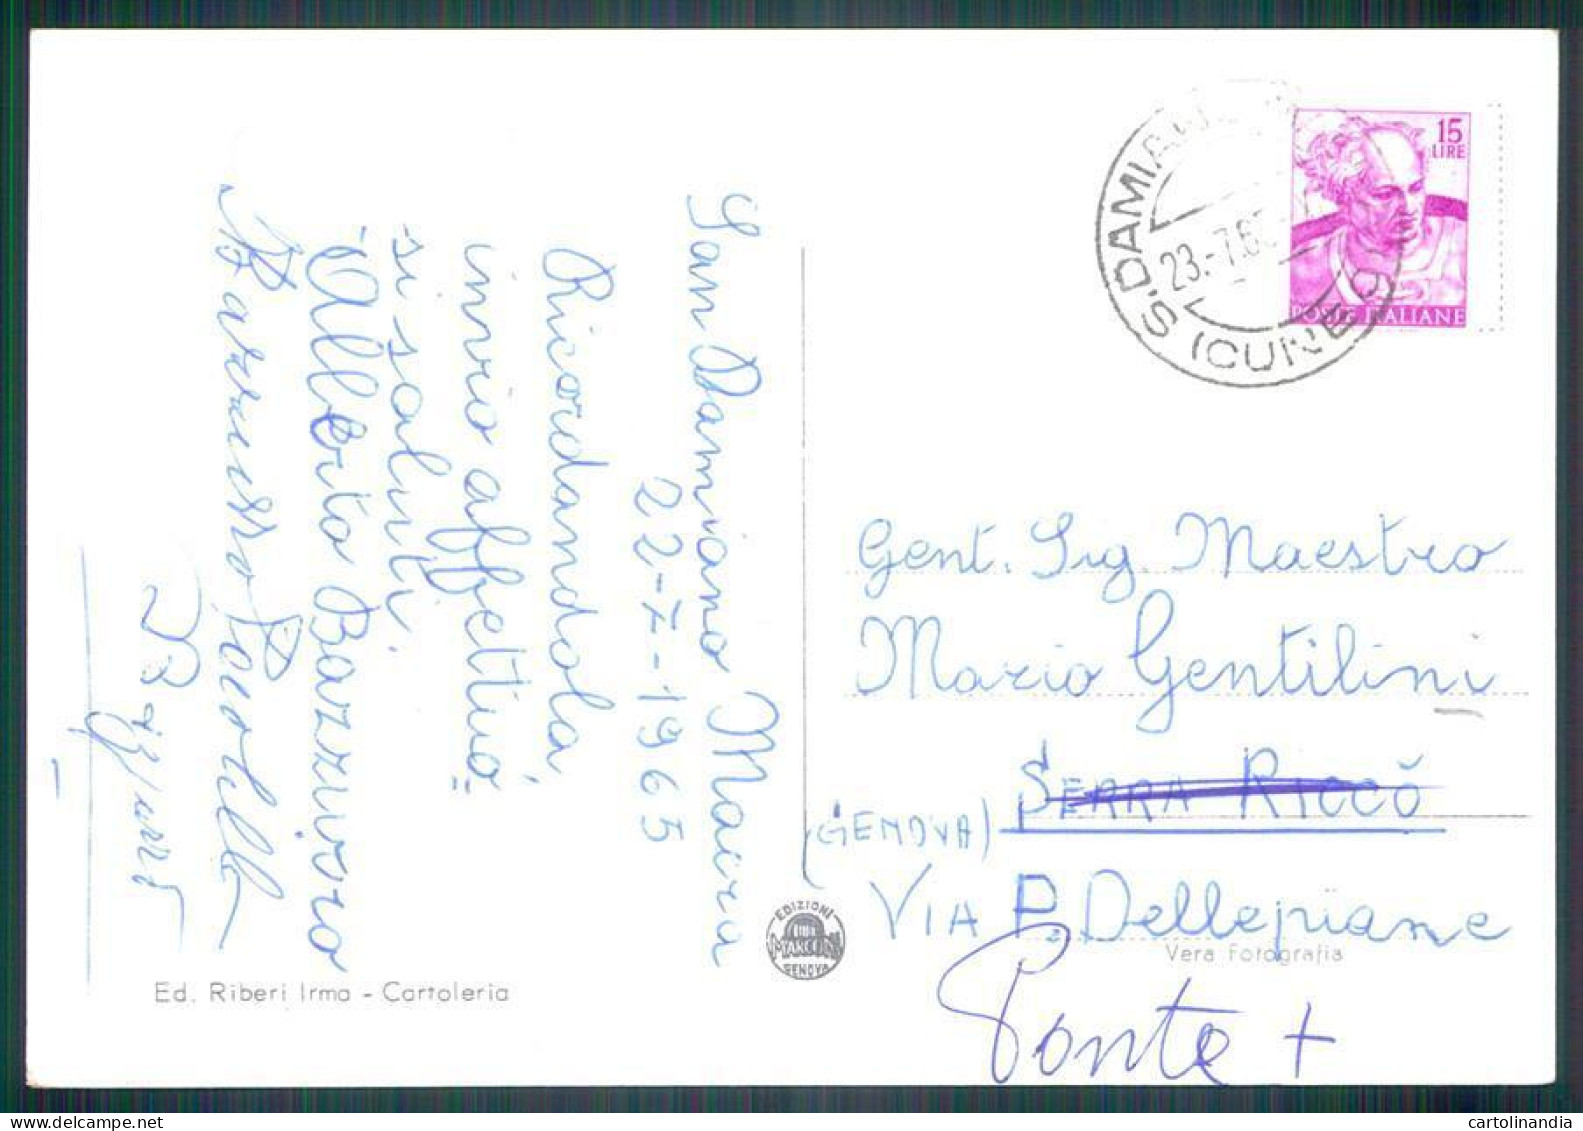 San Damiano Macra
22-7-1965
Ricordandola,
invio affettuo=
-si saluti
-Alberto Bazzurro
Bazzurro
Ed. Riberi Irma - Cartoleria
EDIZIONI
MARCONI
GENOVA
S.DAMIANO
23.-7.65
(CUNEO)
15
LIRE
POSTE ITALIANE
Gent. Sig. Maestro
Mario Gentilini
SERRA RICCÒ
(GENOVA)
VIA P. Dellepiane
Vera Fotografia
Ponte +
cartolinandia